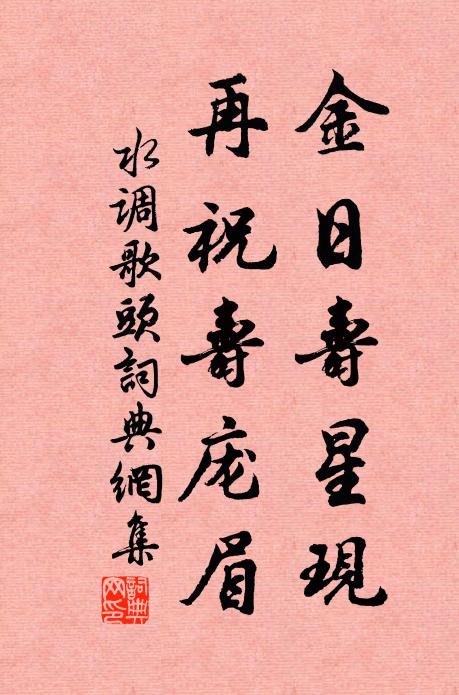 金日壽星現
再祝壽庞眉
水調歌頭詞典網集
詞典網印